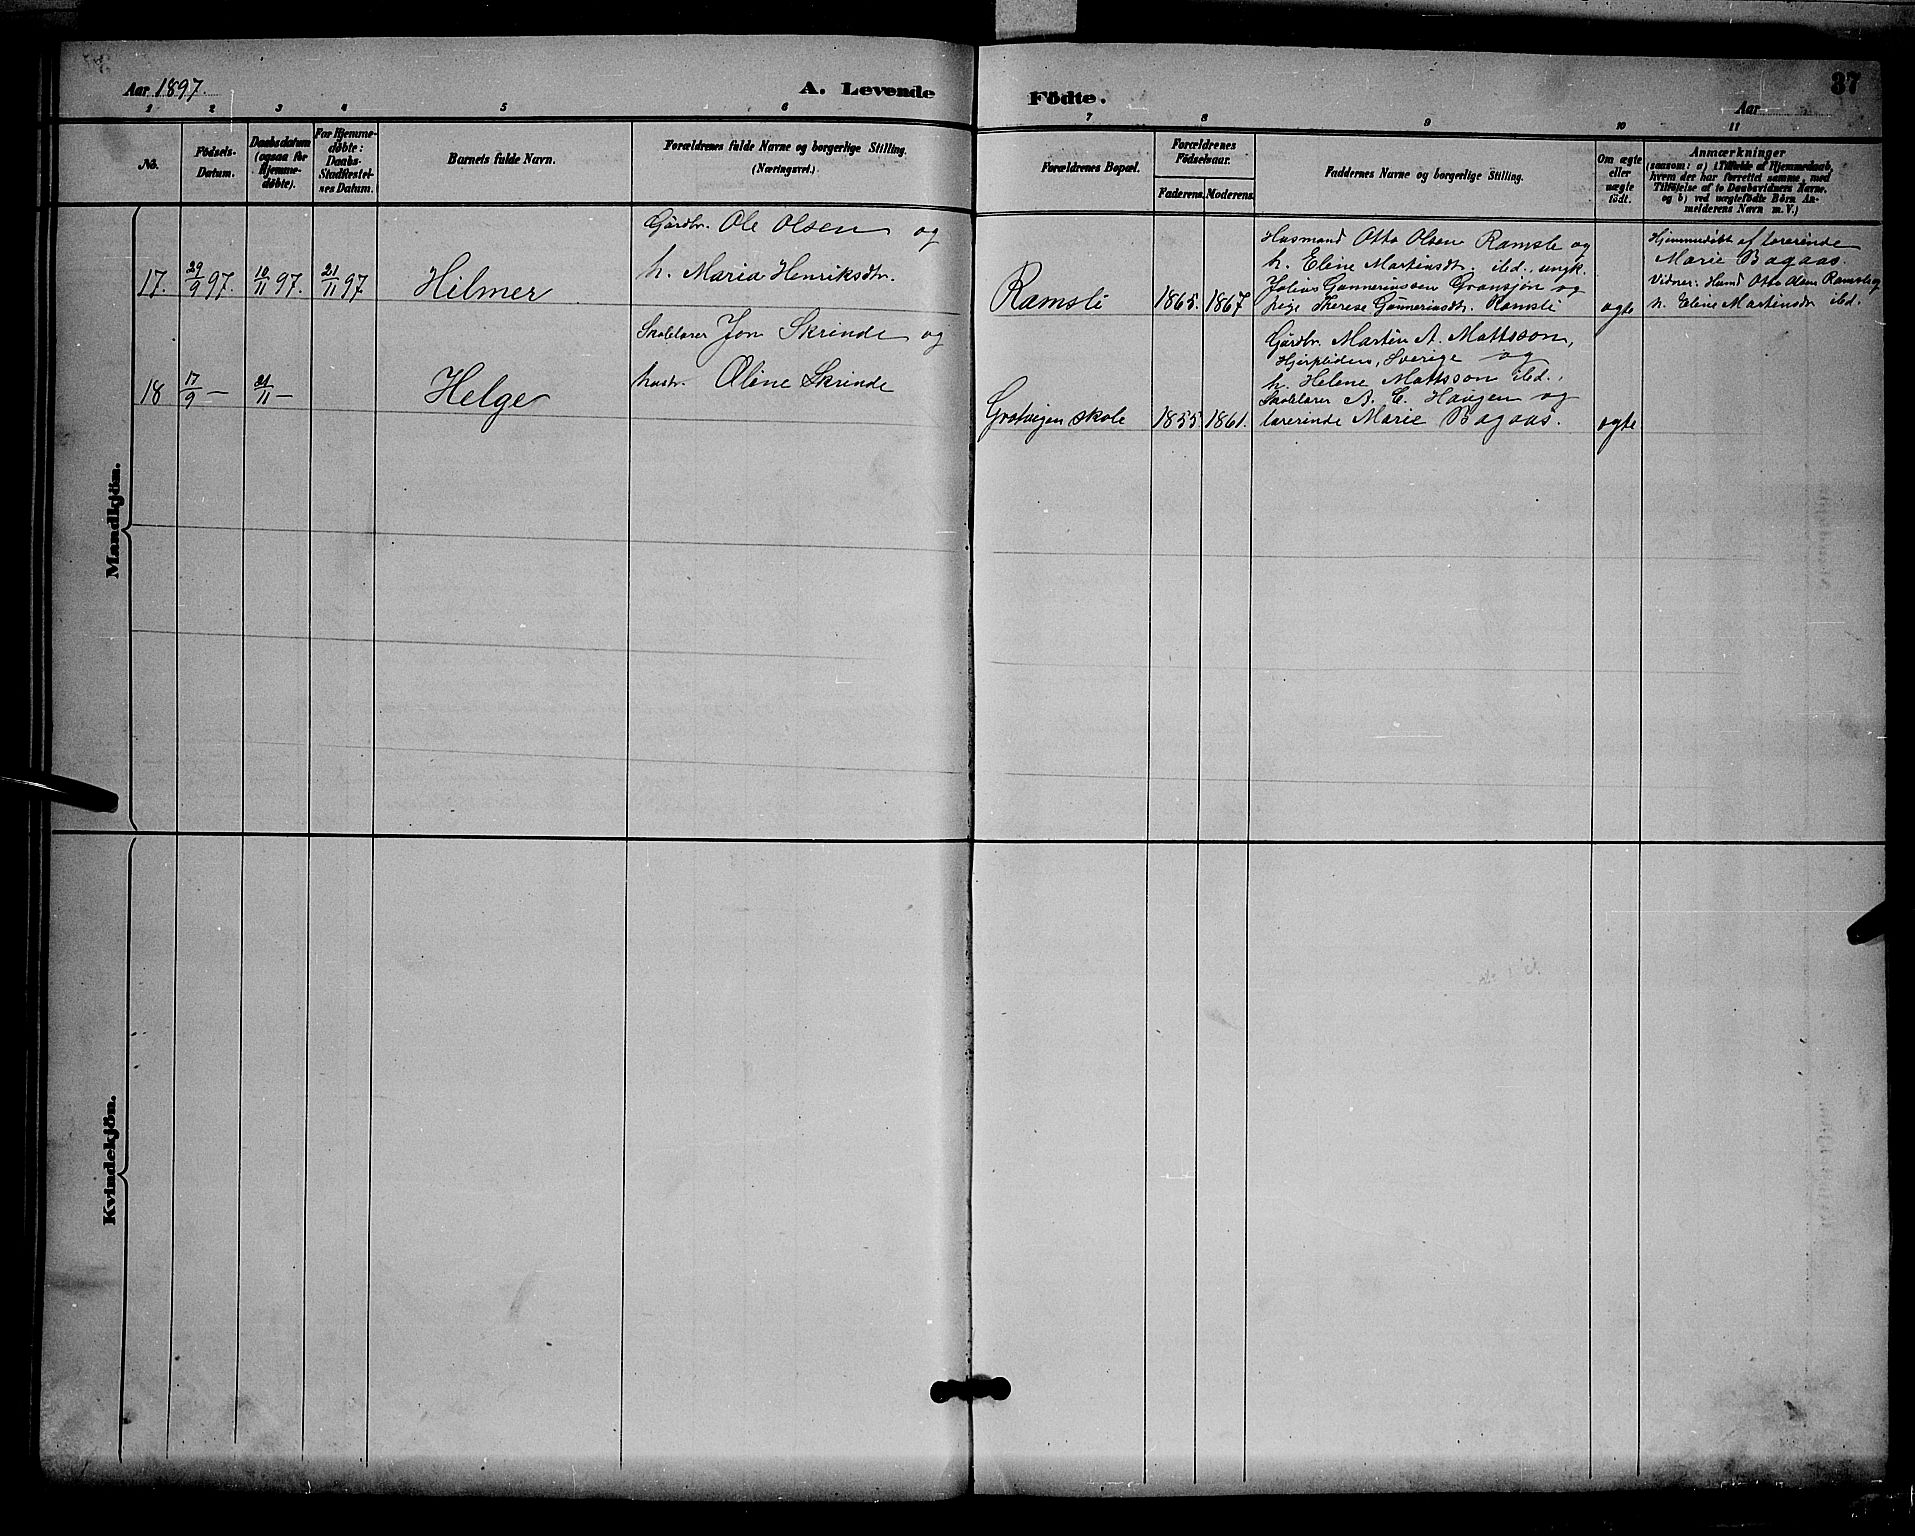 Aar 1897.
A. Levende
Födte.
Aar
37
1 2 3 4 5 6 7 8 9 10 11
No.
Födsels-
Datum.
Daabsdatum
(ogsaa for
Hjemme-
døbte).
For Hjemme-
døbte:
Daabs-
Stadfæstel-
ses Datum.
Barnets fulde Navn.
Forældrenes fulde Navne og borgerlige Stilling.
(Næringsvei.)
Forældrenes Bopæl.
Forældrenes
Födselsaar.
Faderens.
Moderens.
Faddernes Navne og borgerlige Stilling.
Om ægte
eller
uægte
født.
Anmærkninger
(saasom: a) i Tilfælde af Hjemmedaab,
hvem der har forrettet samme, med
Tilföielse af to Daabsvidners Navne.
og b) ved uægtefödte Börn An-
melderens Navn m. V.)
Mandkjön.
17. 29/9 97. 10/11 97. 21/11 97. Hilmer
Gårdbr. Ole Olsen og
h. Maria Henriksdtr.
Ramsli 1865. 1867
Husmand Otto Olsen Ramsle og
h. Eline Martinsdt. ibd., ungk.
Julius Gunneriussen Gransjøn og
pige Therese Gunneriusdt. Ramsli
ægte
Hjemmedøbt af lærerinde
Marie Bagaas.
Vidner: Husmd Otto Olsen Ramsle og
h. Eline Martinsdt ibd.
18 17/9 — 21/11 — Helge
Skolelærer Jon Skrinde og
hustr. Oline Skrinde
skole 1855 1861.
Gårdbr. Martin A. Mattsson,
Hjerpliden, Sverige og
h. Helene Mattsson ibd.,
Skolelærer A. C. Haugen og
lærerinde Marie Bagaas.
ægte
Kvindekjön.